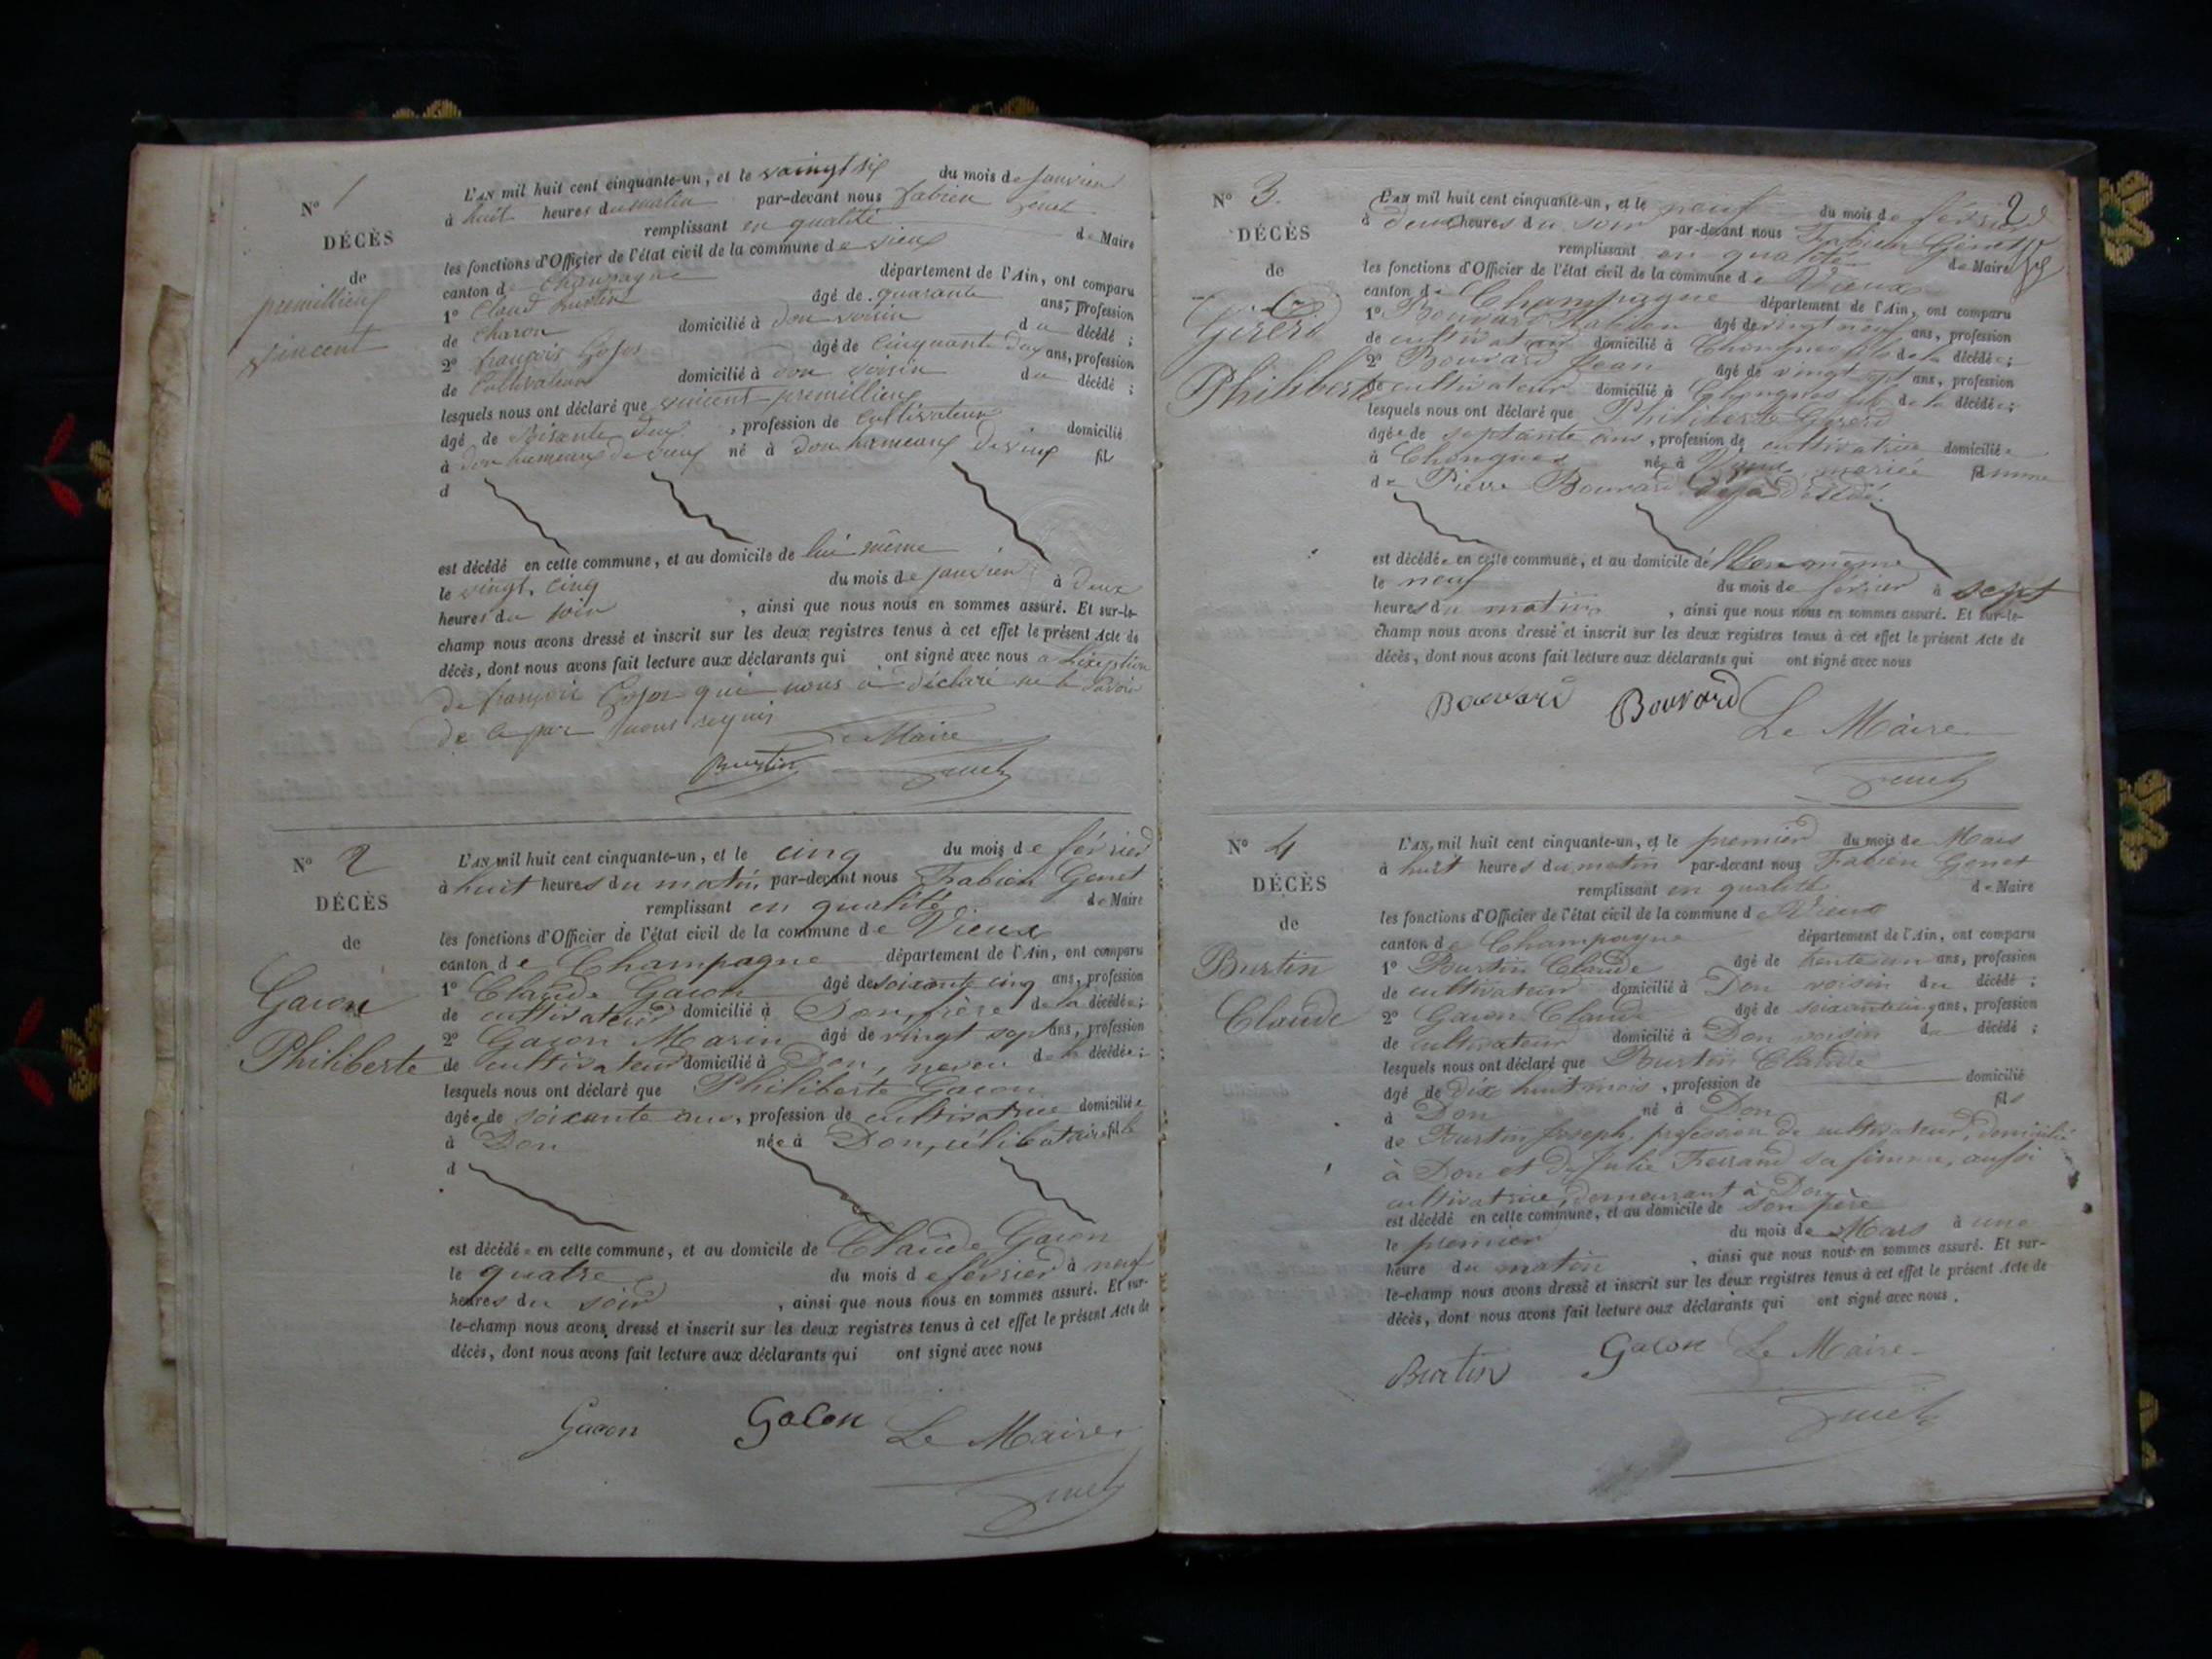 N° 1
DÉCÈS
de
premillieux
vincent
L'AN mil huit cent cinquante-un, et le vaingt six du mois de janvier
à huit heures du matin par-devant nous fabien Genet
remplissant en qualité de Maire
les fonctions d'Officier de l'état civil de la commune de vieux
canton de Champagne département de l'Ain, ont comparu
1° Claud burtin âgé de quarante ans, profession
de charon domicilié à don voisin du décédé ;
2° françois âgé de cinquante deux ans, profession
de Cultivateur domicilié à don voisin du décédé ;
lesquels nous ont déclaré que vincent premillieux
âgé de soisente deux , profession de cultivateur domicilié
à don hameaux de vieux né à don hameaux de vieux fils
d
est décédé en cette commune, et au domicile de lui même
le vingt, cinq du mois de janvier à deux
heures du soir , ainsi que nous nous en sommes assuré. Et sur-le-
champ nous avons dressé et inscrit sur les deux registres tenus à cet effet le présent Acte de
décès, dont nous avons fait lecture aux déclarants qui ont signé avec nous a l'exeption
de françois qui nous a déclaré ne le savoir
de ce par nous requis
Le Maire
Burtin Genet
N° 2
DÉCÈS
de
Gacon
Philiberte
L'AN mil huit cent cinquante-un, et le cinq du mois de février
à huit heures du matin par-devant nous Fabien Genet
remplissant en qualité de Maire
les fonctions d'Officier de l'état civil de la commune de Vieux
canton de Champagne département de l'Ain, ont comparu
1° Claude Gacon âgé de soixante cinq ans, profession
de cultivateur domicilié à Don, frère de la décédée ;
2° Gacon Marin âgé de vingt sept ans, profession
de cultivateur domicilié à Don, neveu de la décédée ;
lesquels nous ont déclaré que Philiberte Gacon
âgée de soixante ans, profession de cultivatrice domiciliée
à Don née à Don, célibataire fille
d
est décédée en cette commune, et au domicile de Claude Gacon
le quatre du mois de février à neuf
heures du soir , ainsi que nous nous en sommes assuré. Et sur-
le-champ nous avons dressé et inscrit sur les deux registres tenus à cet effet le présent Acte de
décès, dont nous avons fait lecture aux déclarants qui ont signé avec nous
Gacon Gacon Le Maire
Genet
2
N° 3.
DÉCÈS
de
Girerd
Philiberte
L'AN mil huit cent cinquante-un, et le neuf du mois de février
à deux heures du soir par-devant nous Fabien Genet
remplissant en qualité de Maire
les fonctions d'Officier de l'état civil de la commune de Vieux
canton de Champagne département de l'Ain, ont comparu
1° Bouvard Fabien âgé de vingt neuf ans, profession
de cultivateur domicilié à Chongnes fils de la décédée ;
2° Bouvard Jean âgé de vingt sept ans, profession
de cultivateur domicilié à Chongnes fils de la décédée ;
lesquels nous ont déclaré que Philiberte Girerd
âgée de septante ans, profession de cultivatrice domiciliée
à Chongnes née à mariée femme
de Pierre Bouvard déjà décédé.
est décédée en cette commune, et au domicile de même
le neuf du mois de février à sept
heures du matin , ainsi que nous nous en sommes assuré. Et sur-le-
champ nous avons dressé et inscrit sur les deux registres tenus à cet effet le présent Acte de
décès, dont nous avons fait lecture aux déclarants qui ont signé avec nous
Bouvard Bouvard
Le Maire
Genet
N° 4
DÉCÈS
de
Burtin
Claude
L'AN mil huit cent cinquante-un, et le premier du mois de Mars
à huit heures du matin par-devant nous Fabien Genet
remplissant en qualité de Maire
les fonctions d'Officier de l'état civil de la commune de Vieux
canton de Champagne département de l'Ain, ont comparu
1° Burtin Claude âgé de trente un ans, profession
de cultivateur domicilié à Don voisin du décédé ;
2° Gacon Claude âgé de soixante cinq ans, profession
de cultivateur domicilié à Don voisin du décédé ;
lesquels nous ont déclaré que Burtin Claude
âgé de dix huit mois , profession de domicilié
à Don né à Don fils
de Burtin Joseph, profession de cultivateur, domicilié
à Don et de Julie Ferrand sa femme, aussi
cultivatrice, demeurant à Don
est décédé en cette commune, et au domicile de son père
le premier du mois de Mars à une
heure du matin , ainsi que nous nous en sommes assuré. Et sur-
le-champ nous avons dressé et inscrit sur les deux registres tenus à cet effet le présent Acte de
décès, dont nous avons fait lecture aux déclarants qui ont signé avec nous.
Burtin Gacon Le Maire
Genet